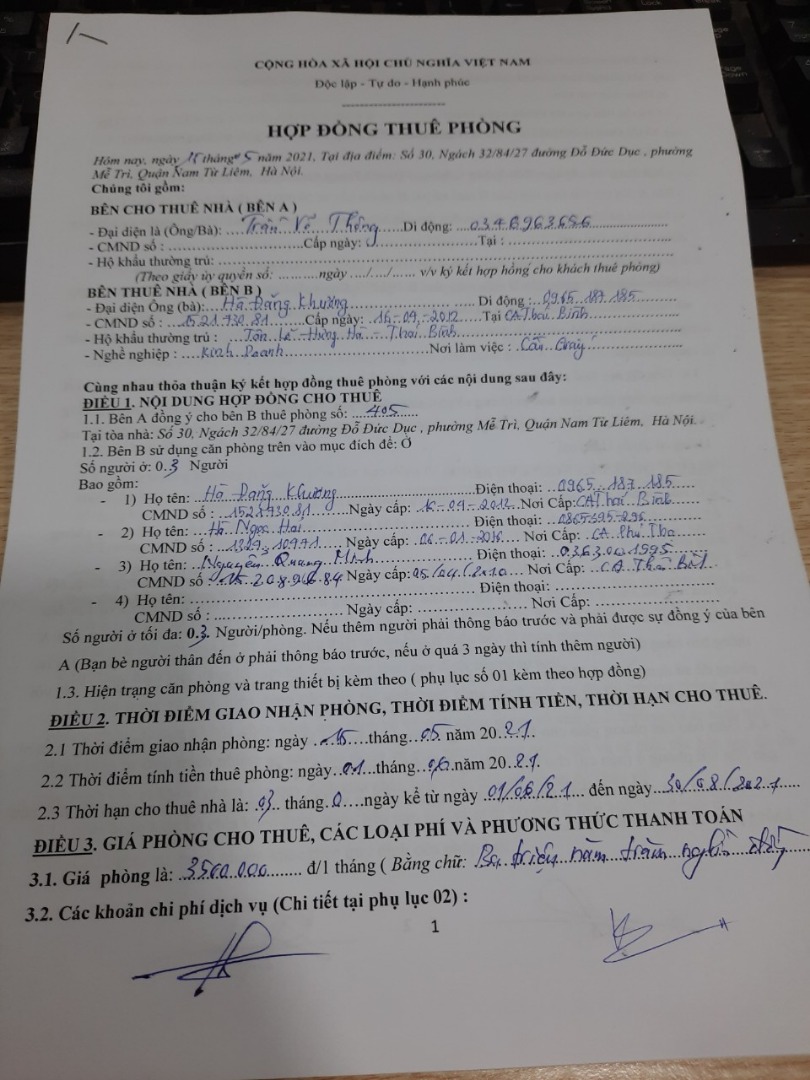 CỘNG HÒA XÃ HỘI CHỦ NGHĨA VIỆT NAM
Độc lập - Tự do - Hạnh phúc
HỢP ĐỒNG THUÊ PHÒNG
Hôm nay, ngày 15 tháng 5 năm 2021, Tại địa điểm: Số 30, Ngách 32/84/27 đường Đỗ Đức Dục , phường
Mễ Trì, Quận Nam Từ Liêm, Hà Nội.
Chúng tôi gồm:
BÊN CHO THUÊ NHÀ ( BÊN A )
- Đại diện là (Ông/Bà): Trần Thông Di động:
- CMND số : Cấp ngày: Tại :
- Hộ khẩu thường trú:
(Theo giấy ủy quyền số: ngày .../..../...... v/v ký kết hợp hồng cho khách thuê phòng)
BÊN THUÊ NHÀ ( BÊN B )
- Đại diện Ông (bà): Hà Đăng Khương Di động : 0965.187.185
- CMND số : 152193081 Cấp ngày: 16-09-2012 Tại CA Thái Bình
- Hộ khẩu thường trú : Tân Lễ - Hưng Hà - Thái Bình
- Nghề nghiệp : Kinh Doanh Nơi làm việc : Cầu Giấy
Cùng nhau thỏa thuận ký kết hợp đồng thuê phòng với các nội dung sau đây:
ĐIỀU 1. NỘI DUNG HỢP ĐỒNG CHO THUÊ
1.1. Bên A đồng ý cho bên B thuê phòng số: 405
Tại tòa nhà: Số 30, Ngách 32/84/27 đường Đỗ Đức Dục , phường Mễ Trì, Quận Nam Từ Liêm, Hà Nội.
1.2. Bên B sử dụng căn phòng trên vào mục đích để: Ở
Số người ở: 0.3 Người
Bao gồm:
- 1) Họ tên: Hà Đăng Khương Điện thoại: 0965.187.185
CMND số : Ngày cấp: 16-09-2012 Nơi Cấp: CA Thái Bình
- 2) Họ tên: Hà Ngọc Hai Điện thoại: 0865.395.296
CMND số : Ngày cấp: 06-01-2016 Nơi Cấp: CA Phú Thọ
- 3) Họ tên: Nguyễn Quang Minh Điện thoại:
CMND số : Ngày cấp: 05/04/2010 Nơi Cấp: CA Thái Bình
- 4) Họ tên: Điện thoại:
CMND số : Ngày cấp: Nơi Cấp:
Số người ở tối đa: 0.3. Người/phòng. Nếu thêm người phải thông báo trước và phải được sự đồng ý của bên
A (Bạn bè người thân đến ở phải thông báo trước, nếu ở quá 3 ngày thì tính thêm người)
1.3. Hiện trạng căn phòng và trang thiết bị kèm theo ( phụ lục số 01 kèm theo hợp đồng)
ĐIỀU 2. THỜI ĐIỂM GIAO NHẬN PHÒNG, THỜI ĐIỂM TÍNH TIỀN, THỜI HẠN CHO THUÊ.
2.1 Thời điểm giao nhận phòng: ngày 15 tháng 05 năm 2021.
2.2 Thời điểm tính tiền thuê phòng: ngày 01 tháng 06 năm 2021.
2.3 Thời hạn cho thuê nhà là: 03 tháng 0 ngày kể từ ngày 01/06/21 đến ngày 30/08/2021
ĐIỀU 3. GIÁ PHÒNG CHO THUÊ, CÁC LOẠI PHÍ VÀ PHƯƠNG THỨC THANH TOÁN
3.1. Giá phòng là: 3500.000 đ/1 tháng ( Bằng chữ: Ba triệu năm trăm nghìn đồng
3.2. Các khoản chi phí dịch vụ (Chi tiết tại phụ lục 02) :
1